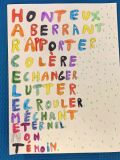 HONTEUX.
ABERRANT.
RAPPORTER.
COLÈRE
ECHANGER
LUTTER.
ECROULER.
MÉCHANT
ETERNEL
NON
TÉMOIN.